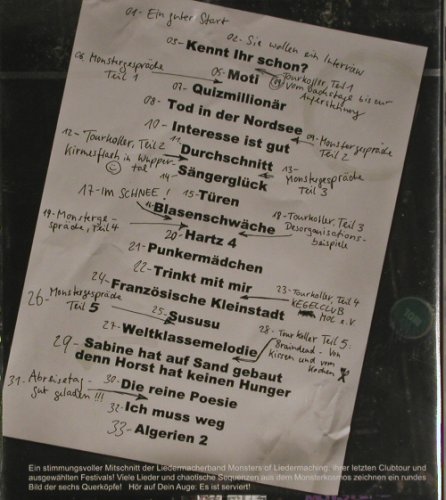 01- Ein guter Start
02- Sie wollen ein Interview
03- Kennt Ihr schon?
06 Monstergespräche
Teil 1
05- Moti
04 Tourkoller, Teil 1
Vom Backstage bis zur
Auferstehung
07- Quizmillionär
08- Tod in der Nordsee
10- Interesse ist gut
09- Monstergespräche
Teil 2
12- Tourkoller, Teil 2
Kirmesflash in Wupper-
tal
11 Durchschnitt
13- Monstergespräche
Teil 3
14- Sängerglück
17- IM SCHNEE!
15- Türen
16- Blasenschwäche
18- Tourkoller, Teil 3
Desorganisations-
beispiele
19- Monsterge-
spräche, Teil 4
20- Hartz 4
21- Punkermädchen
22- Trinkt mit mir
24- Französische Kleinstadt
23- Tourkoller, Teil 4
KEGELCLUB
MOL e.V
26- Monstergespräche
Teil 5
25- Sususu
27- Weltklassemelodie
28- Tourkoller Teil 5:
Braindead - Von
Kissen und vom
Kochen
29- Sabine hat auf Sand gebaut
denn Horst hat keinen Hunger
31- Abreisetag-
gut geladen!!!
30- Die reine Poesie
32- Ich muss weg
33- Algerien 2
Ein stimmungsvoller Mitschnitt der Liedermacherband Monsters of Liedermaching, ihrer letzten Clubtour und
ausgewählten Festivals! Viele Lieder und chaotische Sequenzen aus dem Monsterkosmos zeichnen ein rundes
Bild der sechs Querköpfe! Hör auf Dein Auge: Es ist serviert!